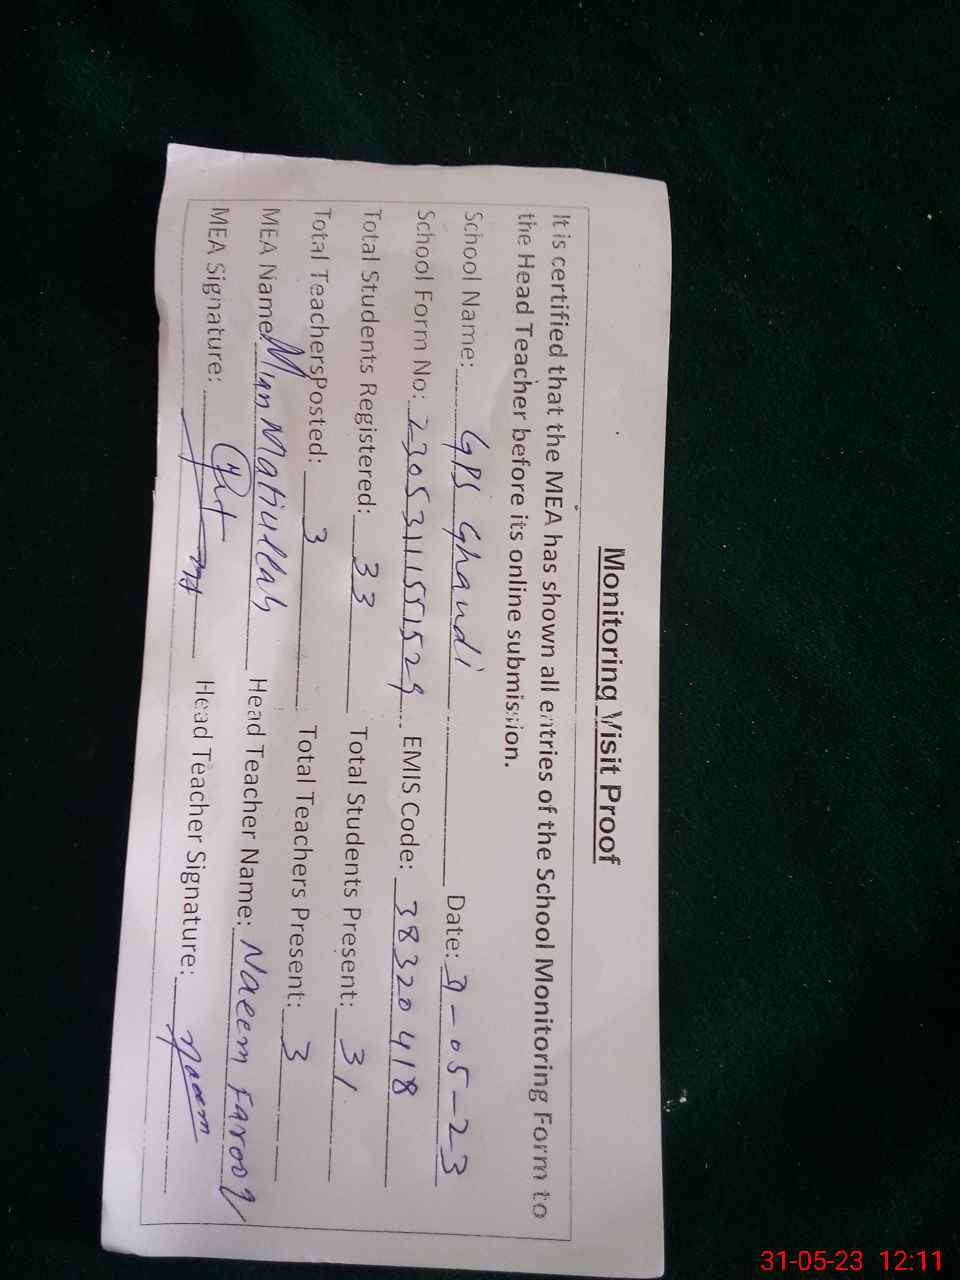 Monitoring Visit Proof
It is certified that the MEA has shown all entries of the School Monitoring Form to
the Head Teacher before its online submission.
School Name: GPS Ghandi Date: 31-05-23
School Form No: 23053111581529 EMIS Code: 38320418
Total Students Registered: 33 Total Students Present: 31
Total TeachersPosted: 3 Total Teachers Present: 3
MEA Name: Mian Matiullah Head Teacher Name: Naeem Farooq
MEA Signature: Head Teacher Signature: Naeem
31-05-23 12:11